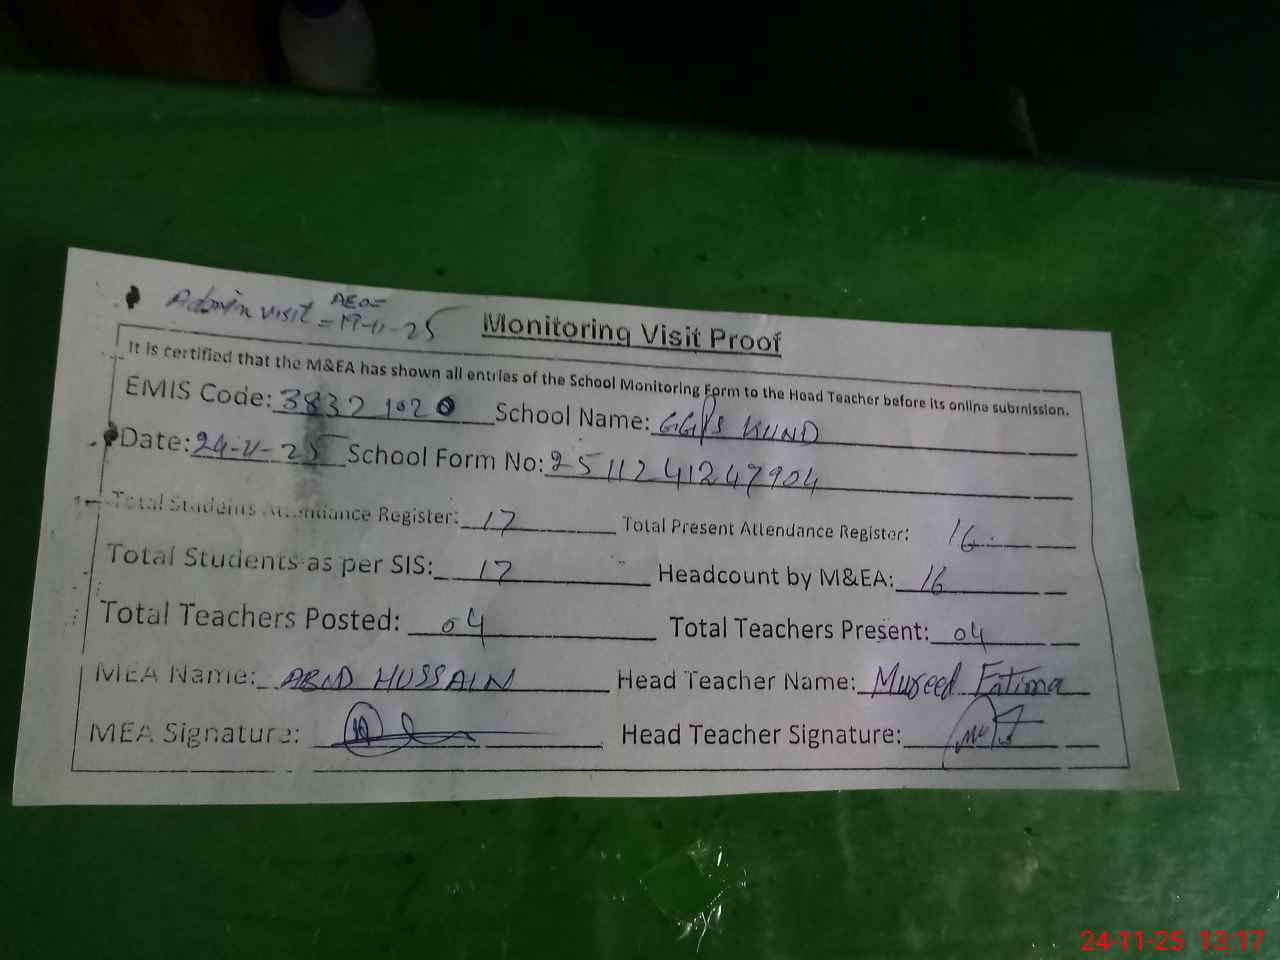 Admin visit AEO=
=19-11-25
Monitoring Visit Proof
It is certified that the M&EA has shown all entries of the School Monitoring Form to the Head Teacher before its online submission.
EMIS Code: 38321020 School Name: GGPS KUND
Date: 24-11-25 School Form No: 2511241247904
Total Students Attendance Register: 17 Total Present Attendance Register: 16
Total Students as per SIS: 17 Headcount by M&EA: 16
Total Teachers Posted: 04 Total Teachers Present: 04
MEA Name: ABID HUSSAIN Head Teacher Name: Mureed Fatima
MEA Signature: Head Teacher Signature:
24-11-25 13:17